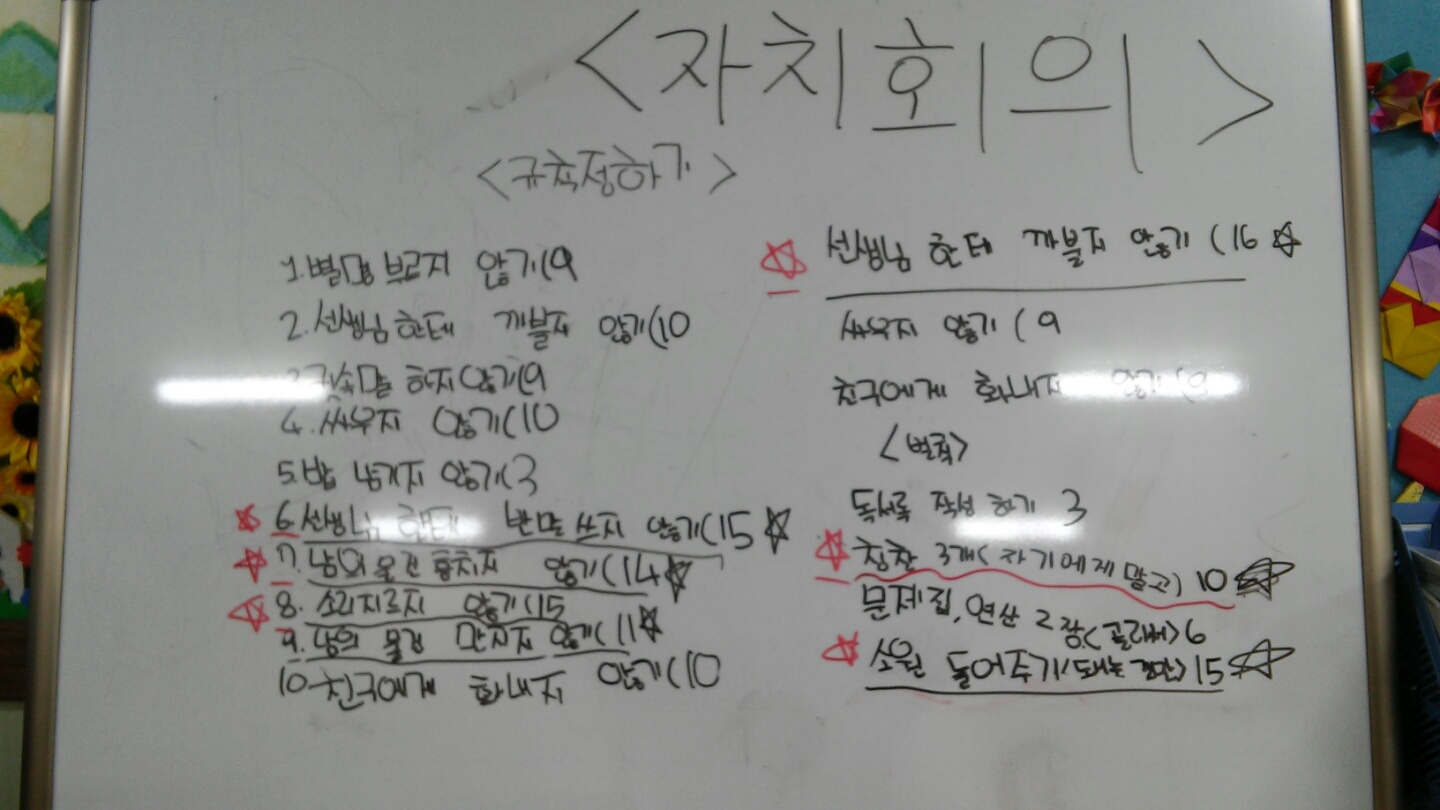 <자치회의>
<규칙정하기>
1. 별명 부르지 않기(9
2. 선생님 한테 까불지 않기(10
하지 않기(9
4. 싸우지 않기(10
5. 밥 남기지 않기(3
6. 선생님 한테 반말 쓰지 않기(15 ☆
7. 남의 물건 훔치지 않기(14 ☆
8. 소리지르지 않기(15
9. 남의 물건 만지지 않기(11 ☆
10. 친구에게 화내지 않기(10
☆ 선생님 한테 까불지 않기(16 ☆
싸우지 않기(9
친구에게 화내지 않기(9
<벌칙>
독서록 작성 하기 3
☆ 칭찬 3개(자기에게 말고) 10 ☆
문제집, 연산 2장<골라써> 6
☆ 소원 들어주기(되는 것만) 15 ☆